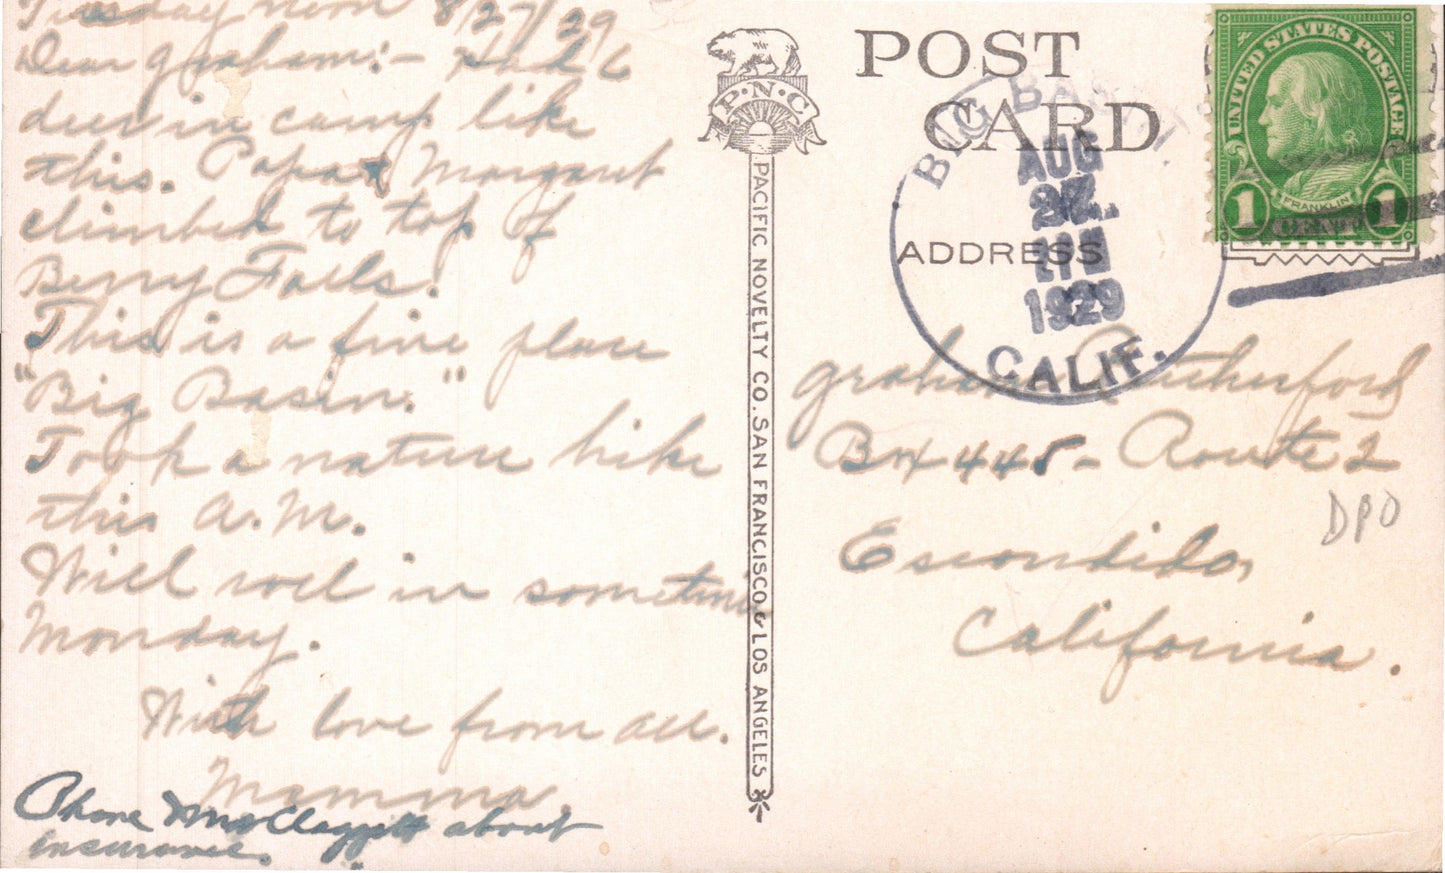 Tuesday noon 8/27/29
Dear Graham:- Had 6
deer in camp like
this. Papa & Margaret
climbed to top of
Berry Falls.
This is a fine place
"Big Basin."
Took a nature hike
this A.M.
Will roll in sometime
Monday.
With love from all.
Mamma.
Phone Mrs Claggett about
insurance.
P·N·C
PACIFIC NOVELTY CO. SAN FRANCISCO & LOS ANGELES
POST
CARD
ADDRESS
BIG BASIN
AUG
27
2 PM
1929
CALIF.
UNITED STATES POSTAGE
FRANKLIN
1 CENT 1
Graham Rutherford
Box 445 - Route 2
Escondido,
California.
DPO